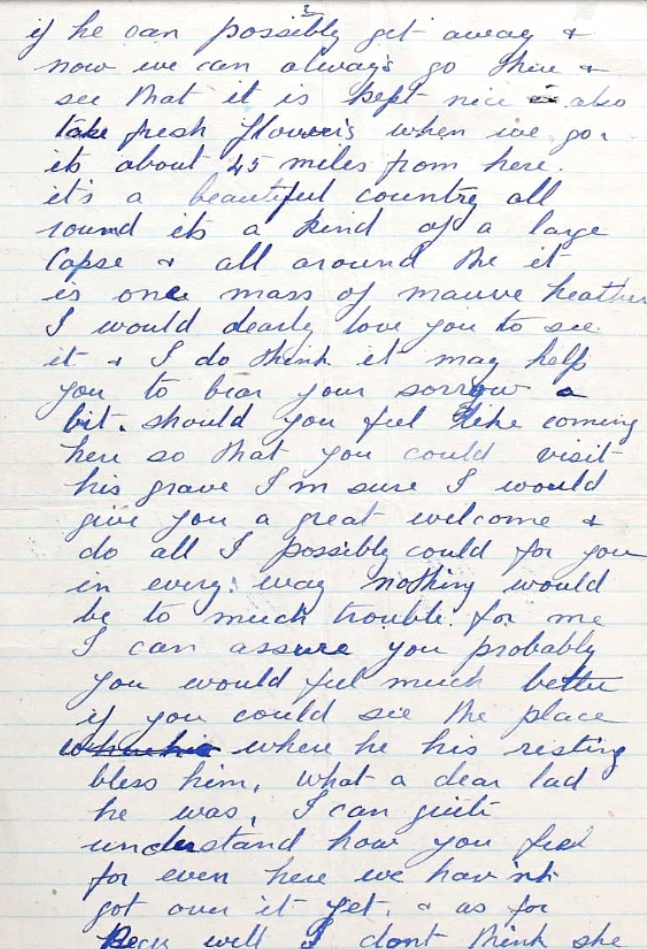 2
if he can possibly get away &
now we can always go there &
see that it is kept nice also
take fresh flowers when we go.
its about 45 miles from here.
it's a beautiful country all
round its a kind of a large
Copse & all around the it
is once mass of mauve heather
I would dearly love you to see
it & I do think it may help
you to bear your sorrow a
bit. should you feel like coming
here so that you could visit
his grave I'm sure I would
give you a great welcome &
do all I possibly could for you
in every way nothing would
be to much trouble for me
I can assure you probably
you would feel much better
if you could see the place
where he his resting
bless him, what a dear lad
he was, I can quite
understand how you feel
for even here we hav'nt
got over it yet. & as for
well I dont think she